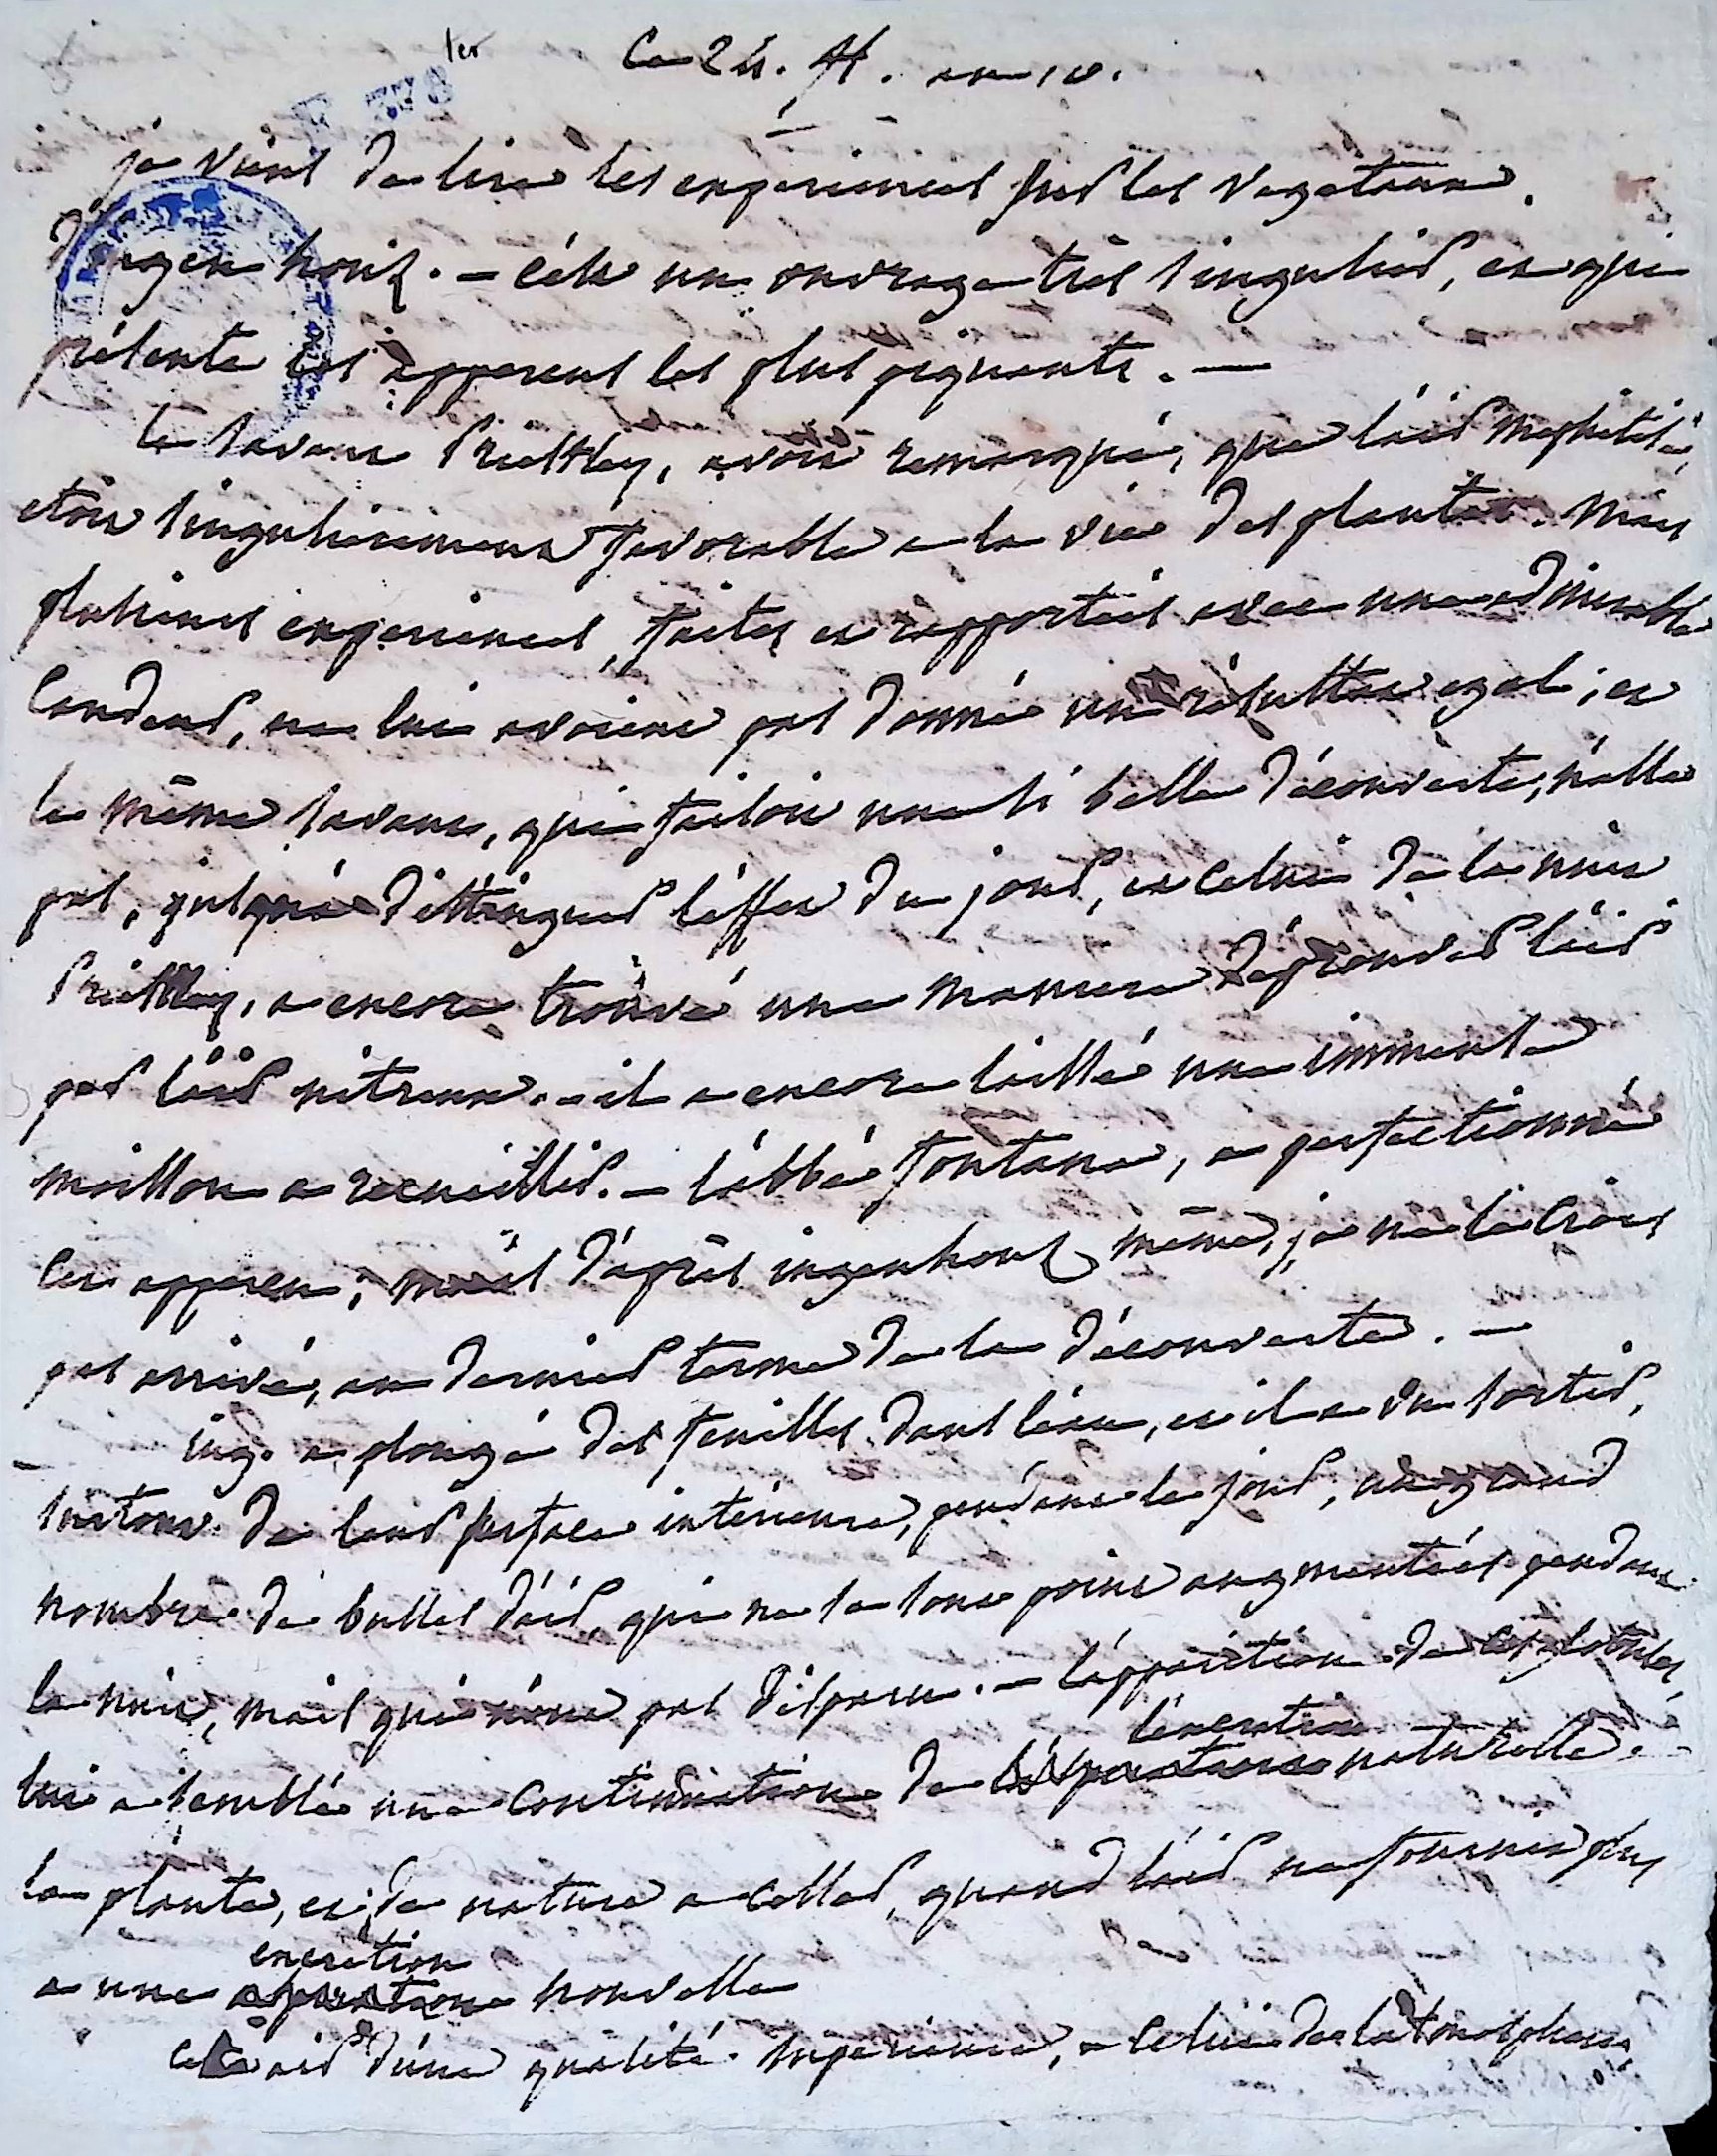 1er
Ce 24. fl. an 10.
je viens de lire les experiences sur les vegetaux.
d'ingen houz. - c'est un ouvrage très singulier, et qui
présente les apperçus les plus piquants. —
le savant Priestley, avoit remarqué, que l'air mephitisé,
etoit singulierement favorable a la vie des plantes. mais
plusieurs experiences, faites et rapportées avec une admirable
candeur, ne lui avoient pas donné un résultat egal; et
le même savant, qui faisoit une si belle découverte, n'alla
pas, jusqu'à distinguer l'effet du jour, et celui de la nuit
Priestley, a encore trouvé une maniere d'éprouver l'air
par l'air nitreux. - il a encore laissé une immense
moisson a recueillir. - l'abbé fontana, a perfectionné
cet apperçu; mais d'après ingenhouz même, je ne le crois
pas arrivé, au dernier terme de la découverte. —
ing. a plongé des feuilles dans l'eau, et il a vu sortir,
surtout de leur surface intérieure, pendant le jour, un grand
nombre de bulles d'air, qui ne se sont point augmentées pendant
la nuit, mais qui n'ont pas disparu. - l'apparition de ces globules,
lui a semblé une continuation de l'excrétion naturelle. -
la plante, est de nature a cesser, quand l'air ne fournit plus
a une excretion nouvelle
cet air d'une qualité supérieure, a celui de l'atmosphere,